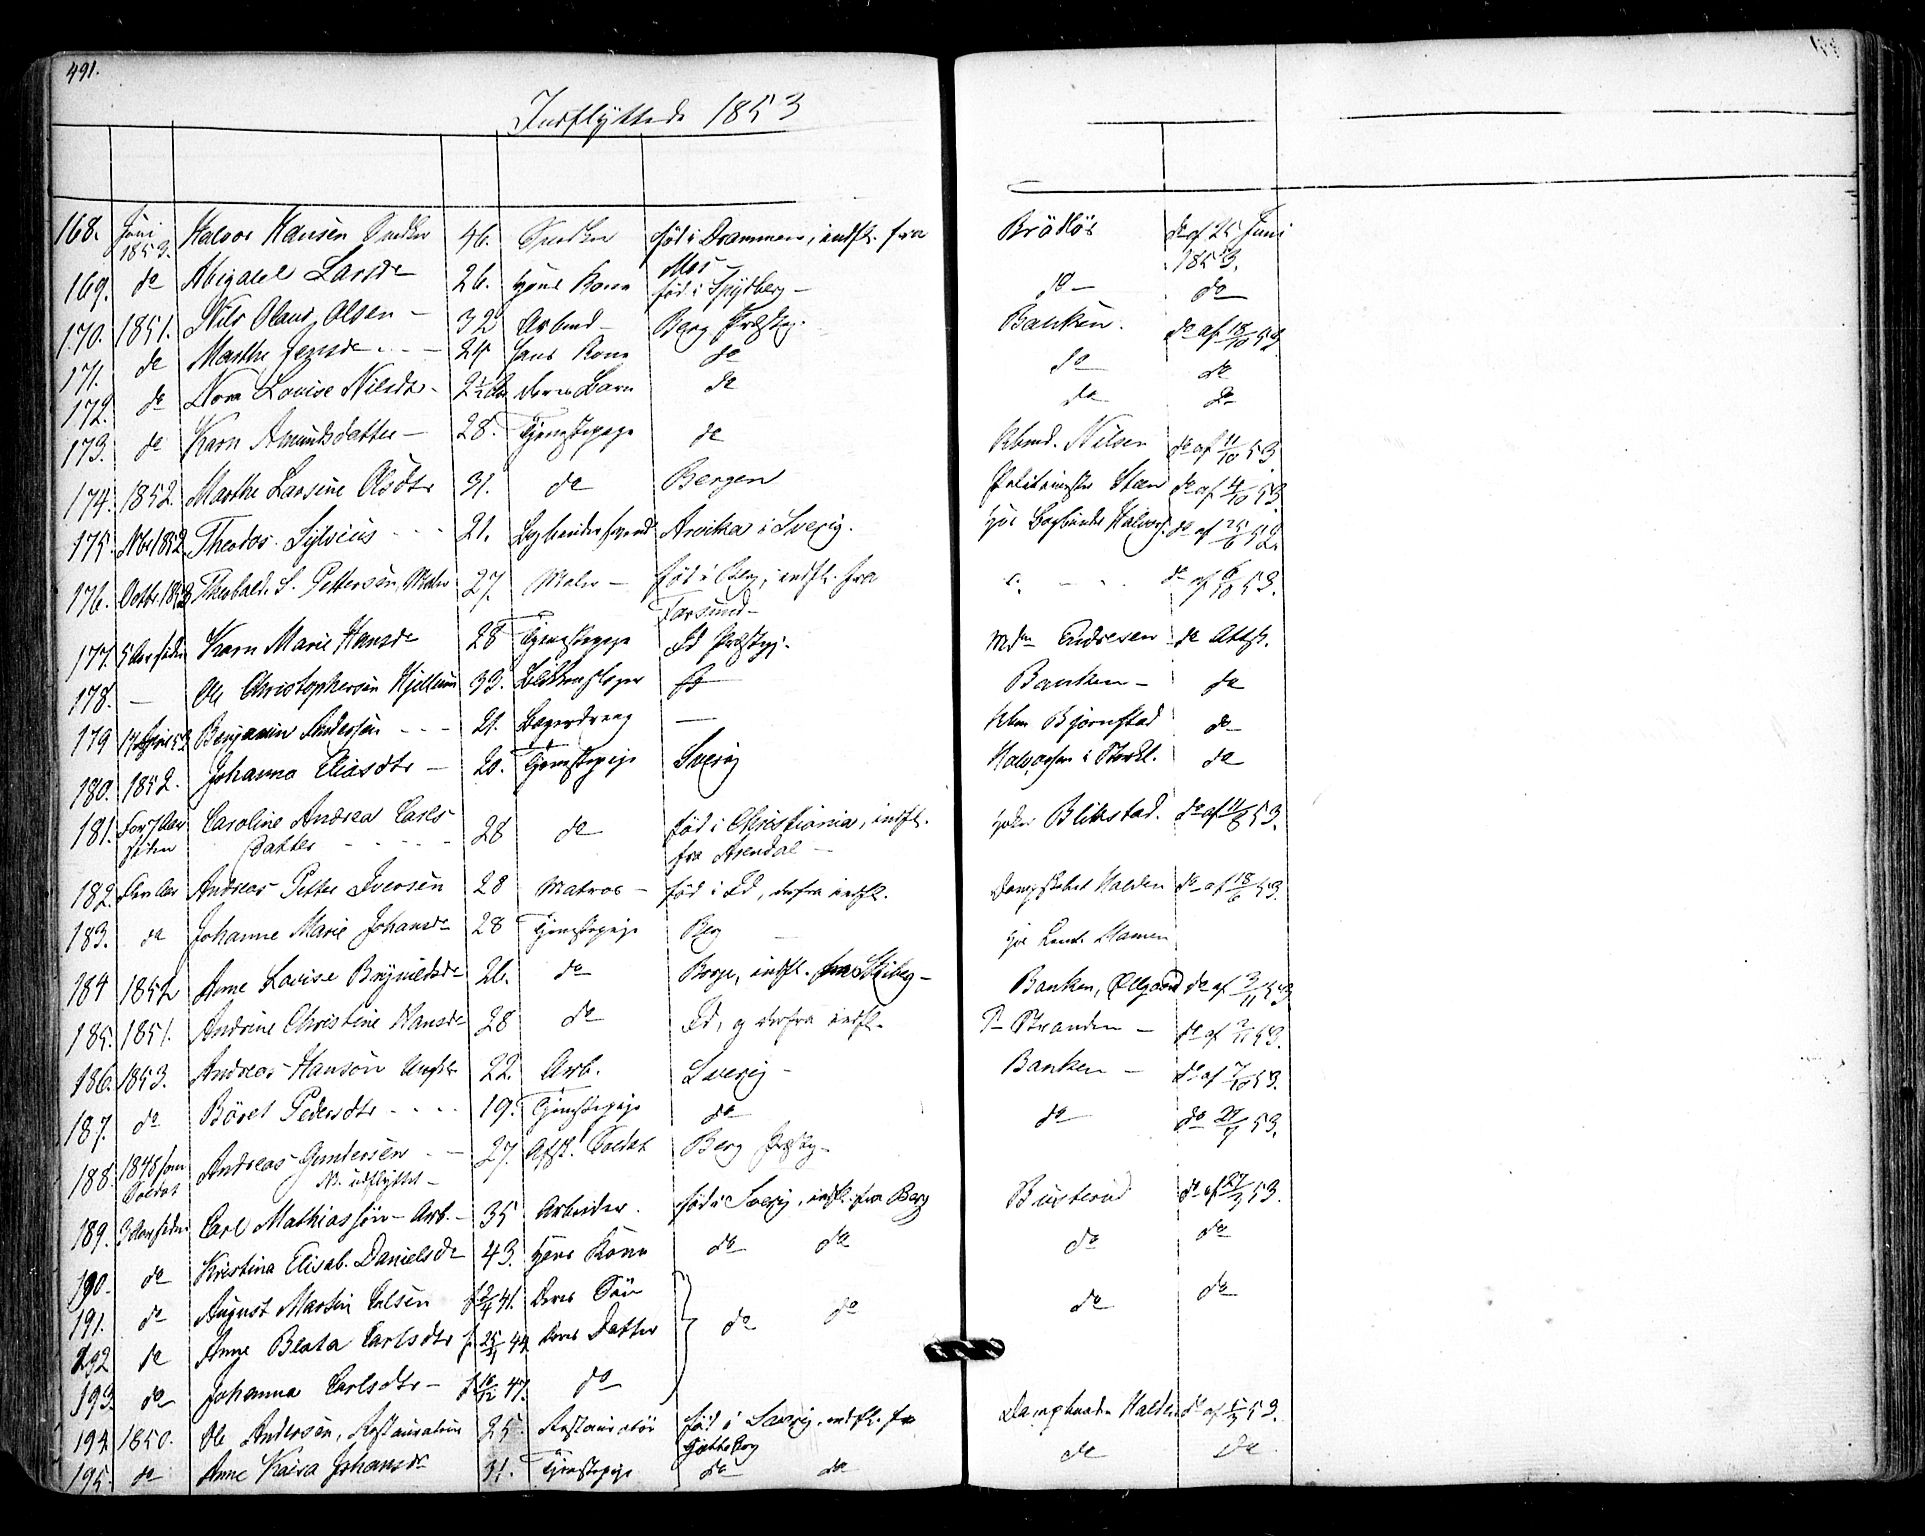 491.
Indflyttede 1853
168. Juni 1853. Halvor Hansen Snedker 46. Snedker född i Drammen, indfl. fra Mos Brödlös do af 25 Juni 1853.
169. do Abigael Larsdr 26. hans Kone föd i Spydberg do do
170. 1851. Nils Olaus Olsen 32 Arbmd Berg Præstgj. Banken. do af 18/10 53.
171. do Marthe Jensdr 24 hans Kone do do do
172. do Nora Lovise Nilsdtr 2 1/2 deres Barn do do do
173. do Karn Amundsdatter 28. Tjenestepige do Kbmd. Nilsen do af 11/10 53
174. 1852. Marthe Larsine Olsdtr 31. do Bergen Politimester Steen do af 4/10 53.
175. Nbr 1852 Theodor Sylvius 21. Bogbindersvend Arvika i Sverig. hos Bogbinder Halvors. do af 25/6 52.
176. Octbr 1852 Theobald S. Pettersen, Maler 27. Maler föd i Berg, indfl. fra Farsund do af 6/10 53.
177. 5 Aar siden Karn Marie Hansdr 28 Tjenestepige Id Præstgj. Mdm Andresen do Attst.
178. — Ole Christophersen Hjellum 33. Banken do
179 17 April 53 Benjamin Andersen 21. Bagerdreng — Kbm Bjørnstad do
180. 1852. Johanna Eliasdtr 20. Tjenestepige Sverig Halvorsen i do
181. For 7 Aar siden Caroline Andrea Carlsdatter 28 do föd i Christiania, indfl. fra Arendal Blikstad. do af 11/8 53.
182. Andreas Petter Iversen 28 Matros föd i Id, derfra indfl. Dampskibet Halden do af 18/6 53.
183. do Johanne Marie Johansdr 28 Tjenestepige Berg hos Hansen
184 1852 Anne Lovise Brynildsdr 26. do Borge, indfl. fra Skiberg Banken, do af 3/11 53
185. 1851. Andrine Christine Hansdr 28 do Id, og derfra indfl. Pr Stranden do af 2/11 53.
186. 1853. Andreas Hanson Ungkr 22. Arb. Sverig Banken do af 7/10 53.
187. do Börel Pedersdtr 19. Tjenestepige do do do 21/7 53.
188. 1848 som Soldat Andreas Gundersen 27. Afsk. Soldat Berg Præstg
NB. udflyttet
189. 3 Aar siden Carl Mathiassön Arb. 35 Arbeider. föd i Sverig, indfl. fra Berg Busterud do af 27/3 53.
190. do Kristina Elisab. Danielsdr 43. hans Kone do do do do
191. do August Martin Calsen f. 2/4 41. Deres Sön do do do do
192 do Anne Beata Carlsdtr f. 25/3 44 Deres Datter
193. do Johanna Carlsdtr f. 10/12 47. do
194. 1850. Ole Andersen, Restaurateur 25. Restauratör föd i Sverig, indfl. fra Gøtheborg Dampbaaden Halden do af 5/7 53.
195. do Anne Kaisa Johansdr 31. Tjenestepige do do do do